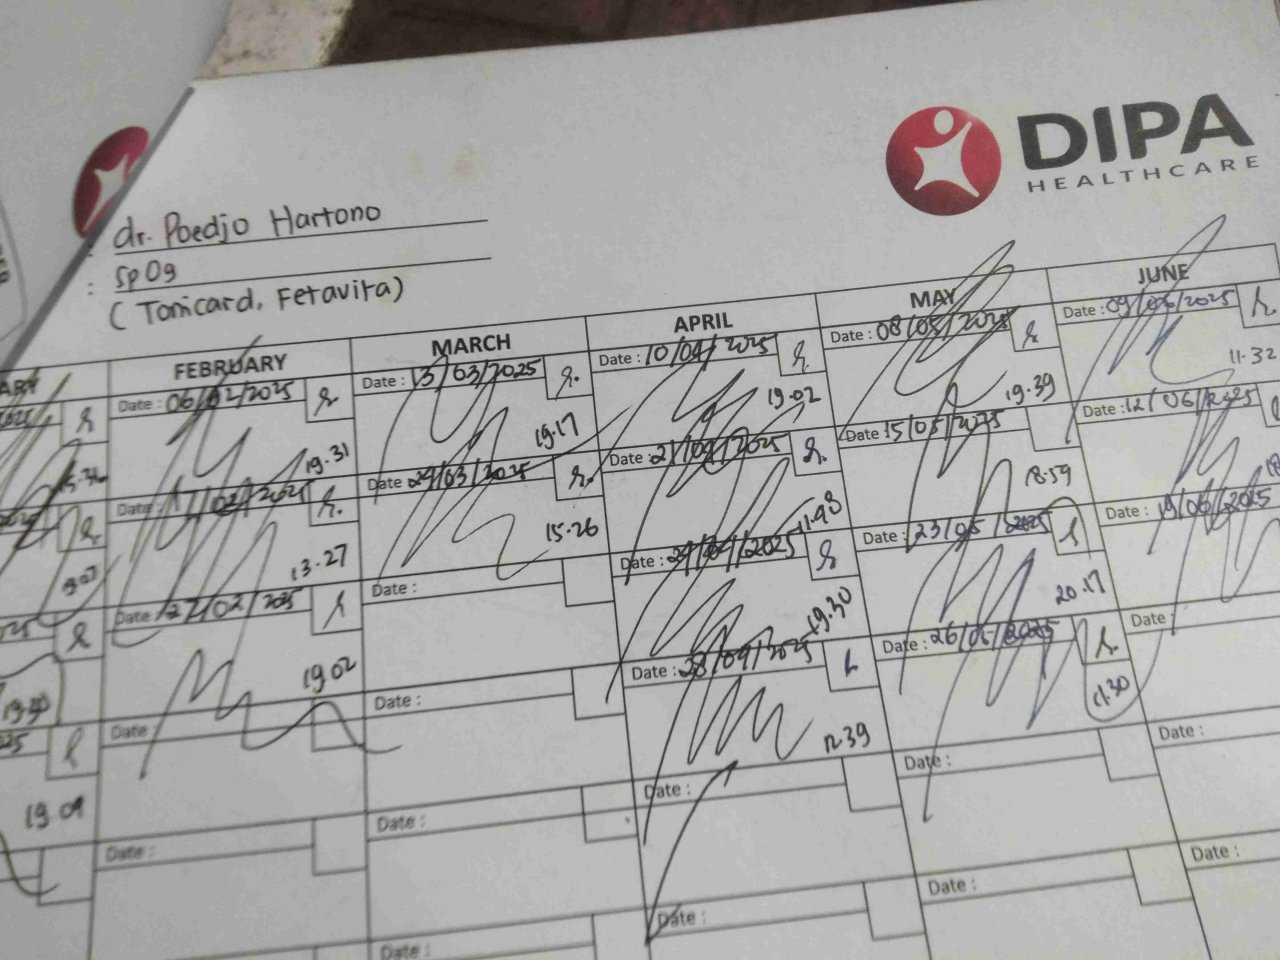 DIPA
HEALTHCARE
: dr. Poedjo Hartono
: Sp Og
( Tonicard, Fetavita)
ARY FEBRUARY MARCH APRIL MAY JUNE
Date : 06/02/2025
19.31
Date : 17/02/2025
13.27
Date : 27/02/2025
19.02
Date
Date :
Date : 13/03/2025
19.17
Date 24/03/2025
15.26
Date :
Date :
Date :
Date :
Date : 10/04/2025
19.02
Date : 21/04/2025
Date : 24/04/2025
19.30
Date : 28/04/2025
12.39
Date :
Date :
Date : 08/05/2025
19.39
Date 15/05/2025
18.59
Date : 23/05/2025
20.17
Date : 26/05/2025
11.30
Date :
Date :
Date : 09/06/2025
11.32
Date : 12/06/2025
Date : 19/06/2025
Date
Date :
Date :
19.09